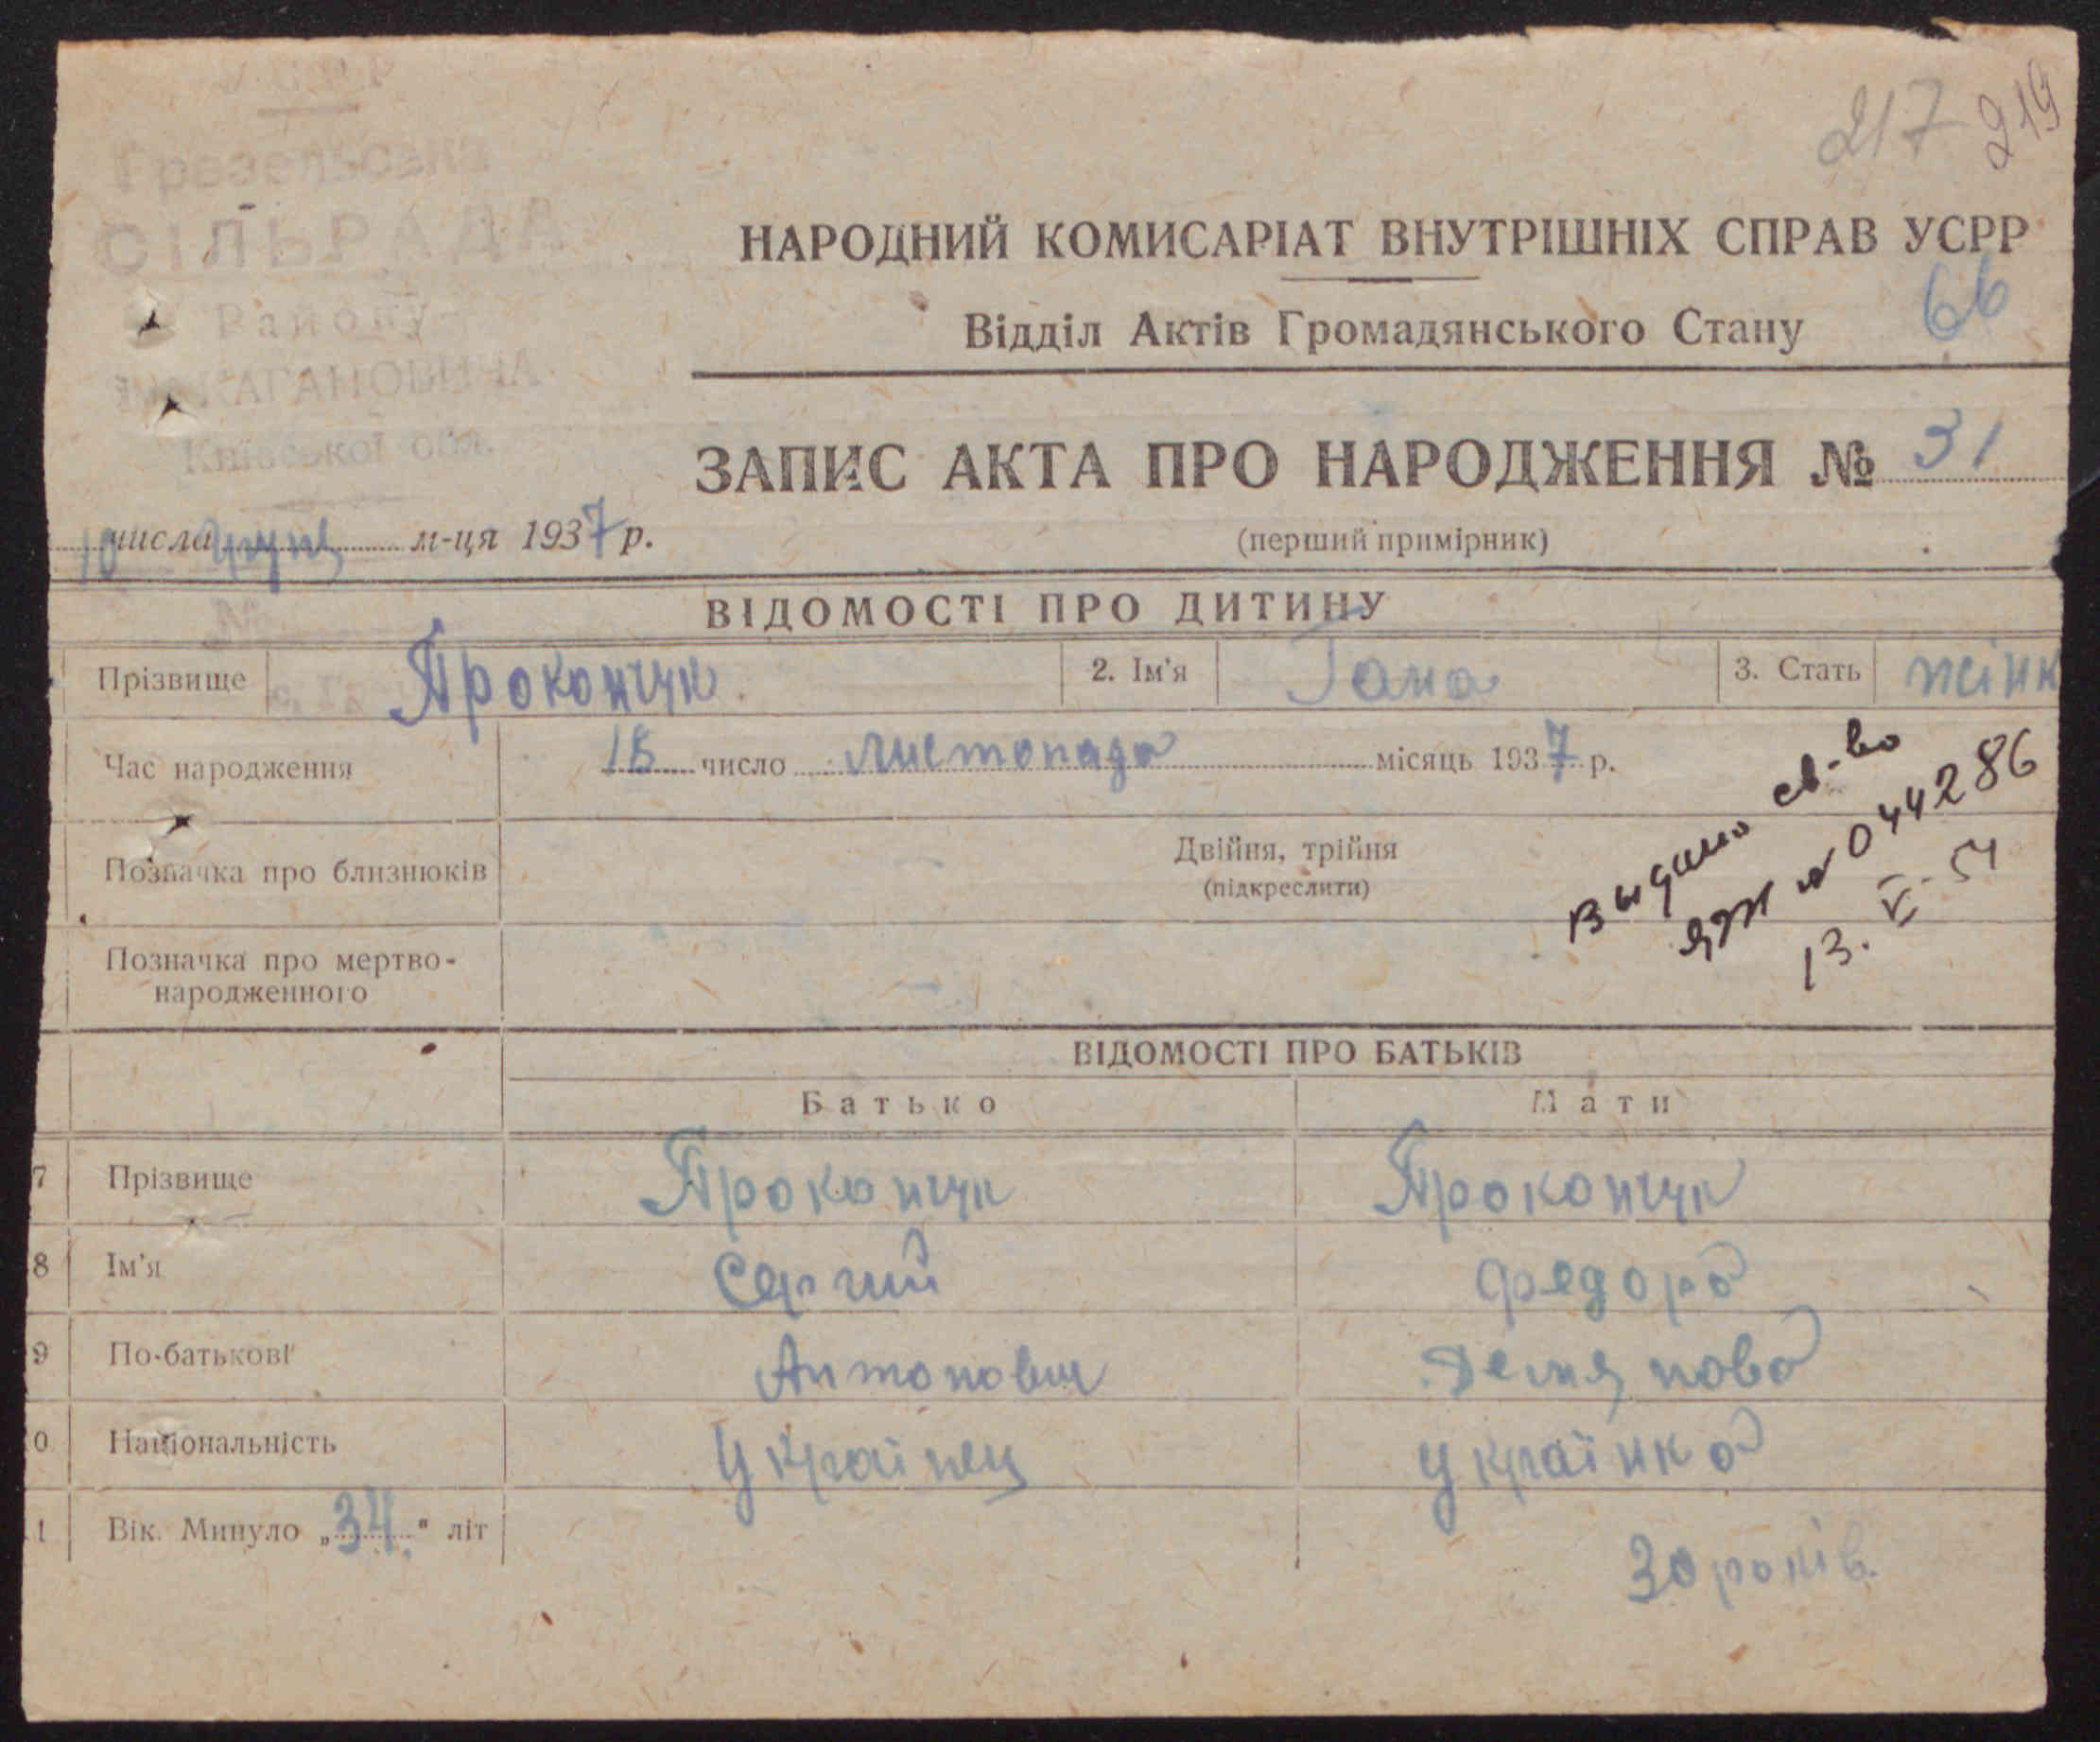 УСРР
Грезельська
СІЛЬРАДА
Району
КАГАНОВИЧА
Київської обл.
217 219
НАРОДНИЙ КОМИСАРІАТ ВНУТРІШНІХ СПРАВ УСРР
66
Відділ Актів Громадянського Стану
ЗАПИС АКТА ПРО НАРОДЖЕННЯ № 31
10 числа грудн м-ця 1937 р.
(перший примірник)
ВІДОМОСТІ ПРО ДИТИНУ
Прізвище Прокопчук 2. Ім'я Гана 3. Стать жінк
Час народження 18 число листопада місяць 1937 р.
Позначка про близнюків Двійня, трійня
(підкреслити)
Выдано св-во
ЯЖ № 044286
13. VI. 54
Позначка про мертво-
народженного
ВІДОМОСТІ ПРО БАТЬКІВ
Батько Мати
7 Прізвище Прокопчук Прокопчук
8 Ім'я Сергий Федора
9 По-батькові Антонович Демянова
0 Національність Українец Українка
1 Вік. Минуло „34" літ
30 років.